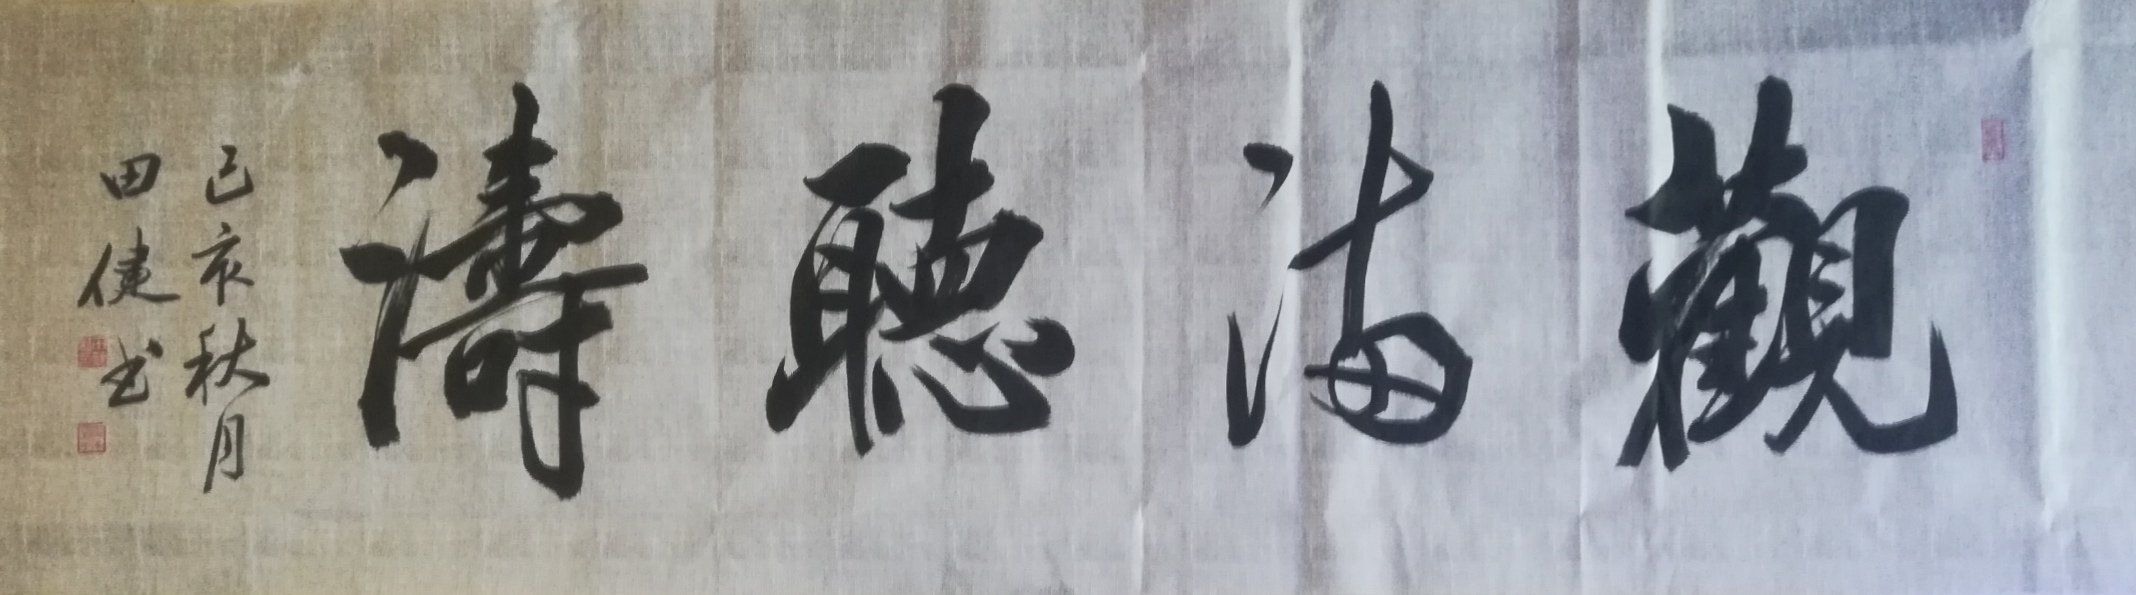 觀海聽濤
己亥秋月
田健书